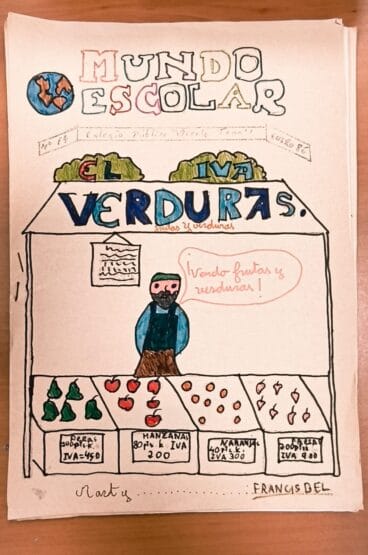 MUNDO
ESCOLAR
Nº 14 Colegio Público ENERO 86
EL IVA
VERDURAS.
frutas y verduras
¡Vendo frutas y
verduras!
PERAS
100 pts k.
IVA=450
MANZANAS
80 pts k. IVA
200
NARANJAS
40 pts k.
IVA 300
IVA 900
FRANCIS BEL